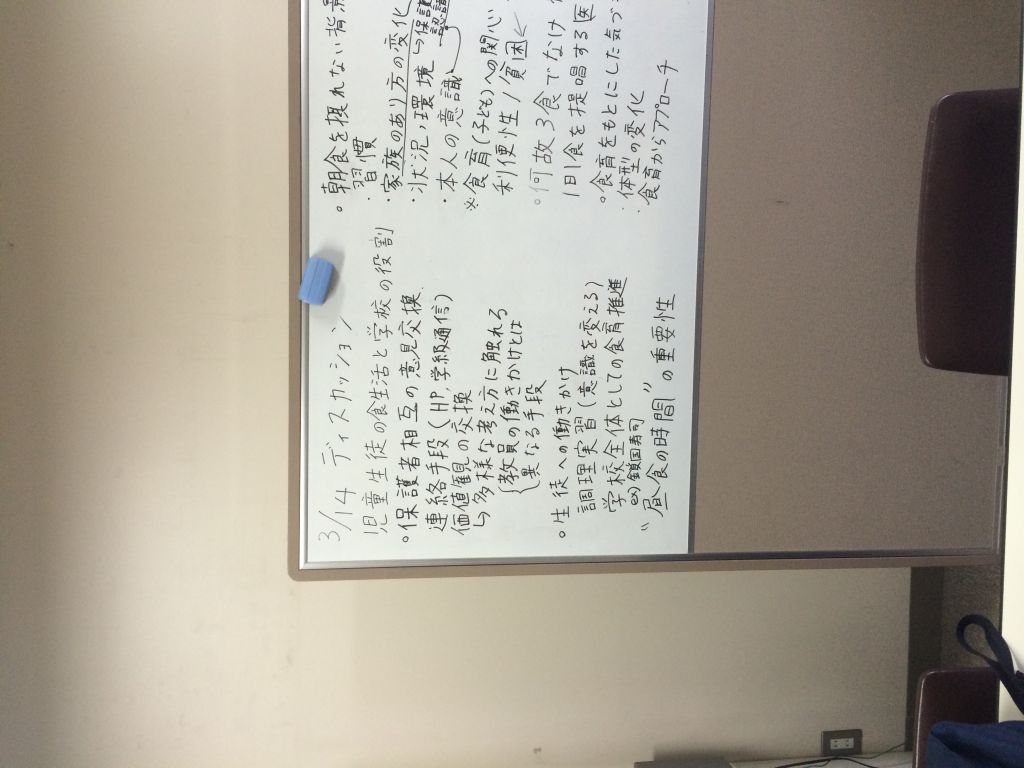 3/14 ディスカッション
児童生徒の食生活と学校の役割
○保護者相互の意見交換
連絡手段(HP,学級通信)
価値観の交換
↳多様な考え方に触れる
教員の働きかけとは
異なる手段
○生徒への働きかけ
調理実習(意識を変える)
学校全体としての食育推進
ex)鎖国寿司
"昼食の時間"の重要性
○朝食を摂れない背景
・習慣
・家族のあり方の変化
・状況,環境→保護
認識
・本人の意識
※食育(子ども)への関心
利便性/貧困
○何故3食でなけ
1日1食を提唱する医
○食育をもとにした気づ
・体型の変化
・食育からアプローチ